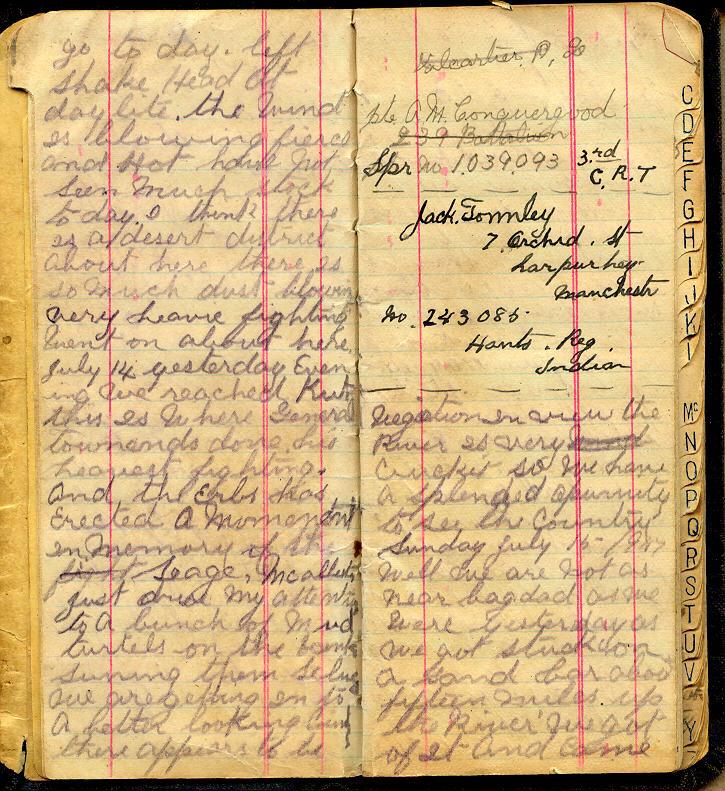 go to day. left
Shake Head at
day lite. the Wind
is blowing fierce
and Hot have not
seen Much stock
to day. I think there
is a desert district
about here there is
so much dust blowing
very heavie fighting
went on about here.
July 14 yesterday Even
ing We reached Kut
this is Where General
townsends done his
heaviest fighting.
and the Erbs has
Erected A Moment
in Memory of the
fight Seage, Mcallister
just drew My attention
to A bunch of Mud
turtels on the bank
suning them selves
we are geting in to
A better looking
there appears to be
Valcartier. P, Q
pte A. M. Conquergood
239 Battalion
Spr No 1039093 3rd
C. R. T
Jack. Townley
7. Orchrd. St
harpurhey
Manchestr
No. 243085.
Hants. Reg.
Indian
Vegetion in view the
River is very
Crucket so We have
A splended opurnity
to see the Country
Sunday July 15/1917
Well We are not as
near bagdad as we
Were yesterday as
We got stuck on
a sand bar about
fifteen miles up
the River We got
of it and Came
C
D
E
F
G
H
I
J
K
L
Mc
N
O
P
Q
R
S
T
U
V
Y